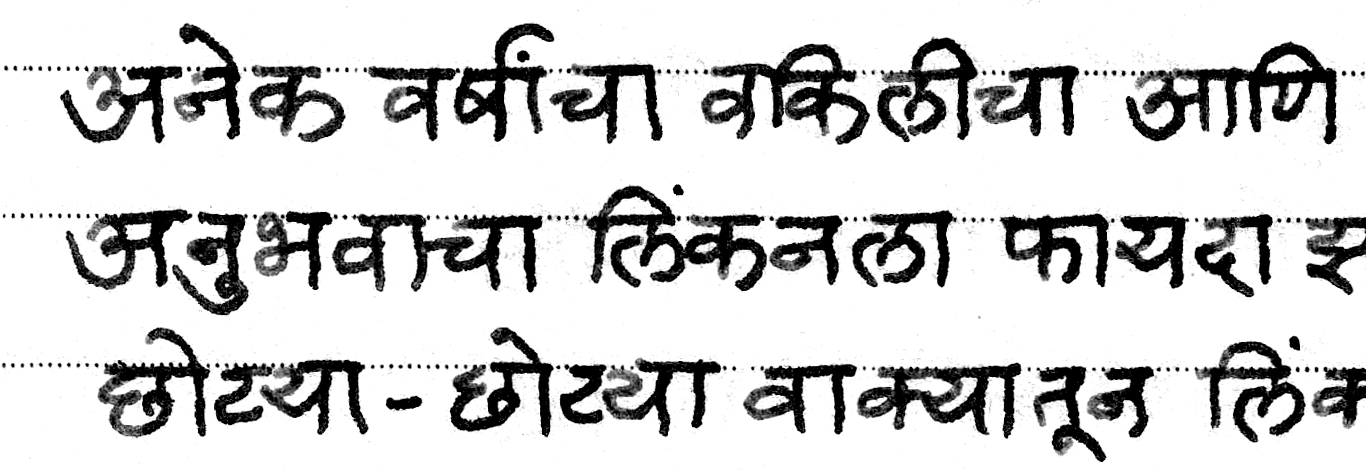 अनेक वर्षांचा वकिलीचा आणि
अनुभवाचा लिंकनला फायदा
छोट्या-छोट्या वाक्यातून